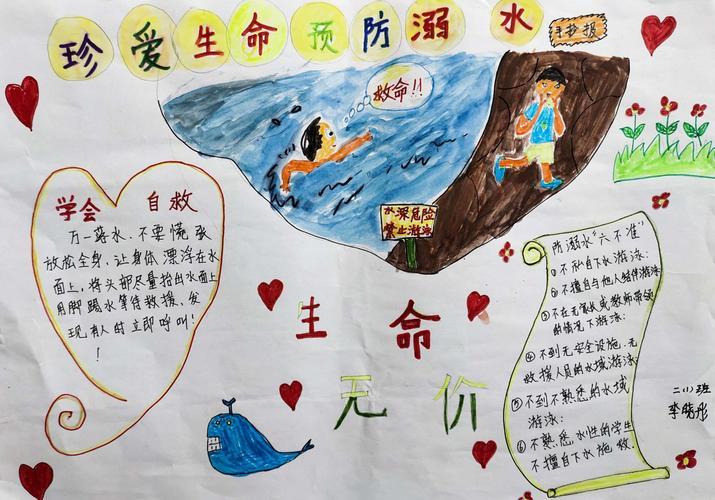 珍爱生命预防溺水
手抄报
救命!!
水深危险
禁止游泳
学会 自救
万一落水,不要慌张
放松全身,让身体漂浮在水
面上,将头部尽量抬出水面上
用脚踢水等待救援,发
现有人时立即呼叫!
!
生命
无价
防溺水"六不准"
①不私自下水游泳;
②不擅自与他人结伴游泳
③不在无家长或教师带领
的情况下游泳;
④不到无安全设施、无
救援人员的水域游泳
⑤不到不熟悉的水域
游泳;
⑥不熟悉水性的学生
不擅自下水施救.
二(1)班
李晓彤